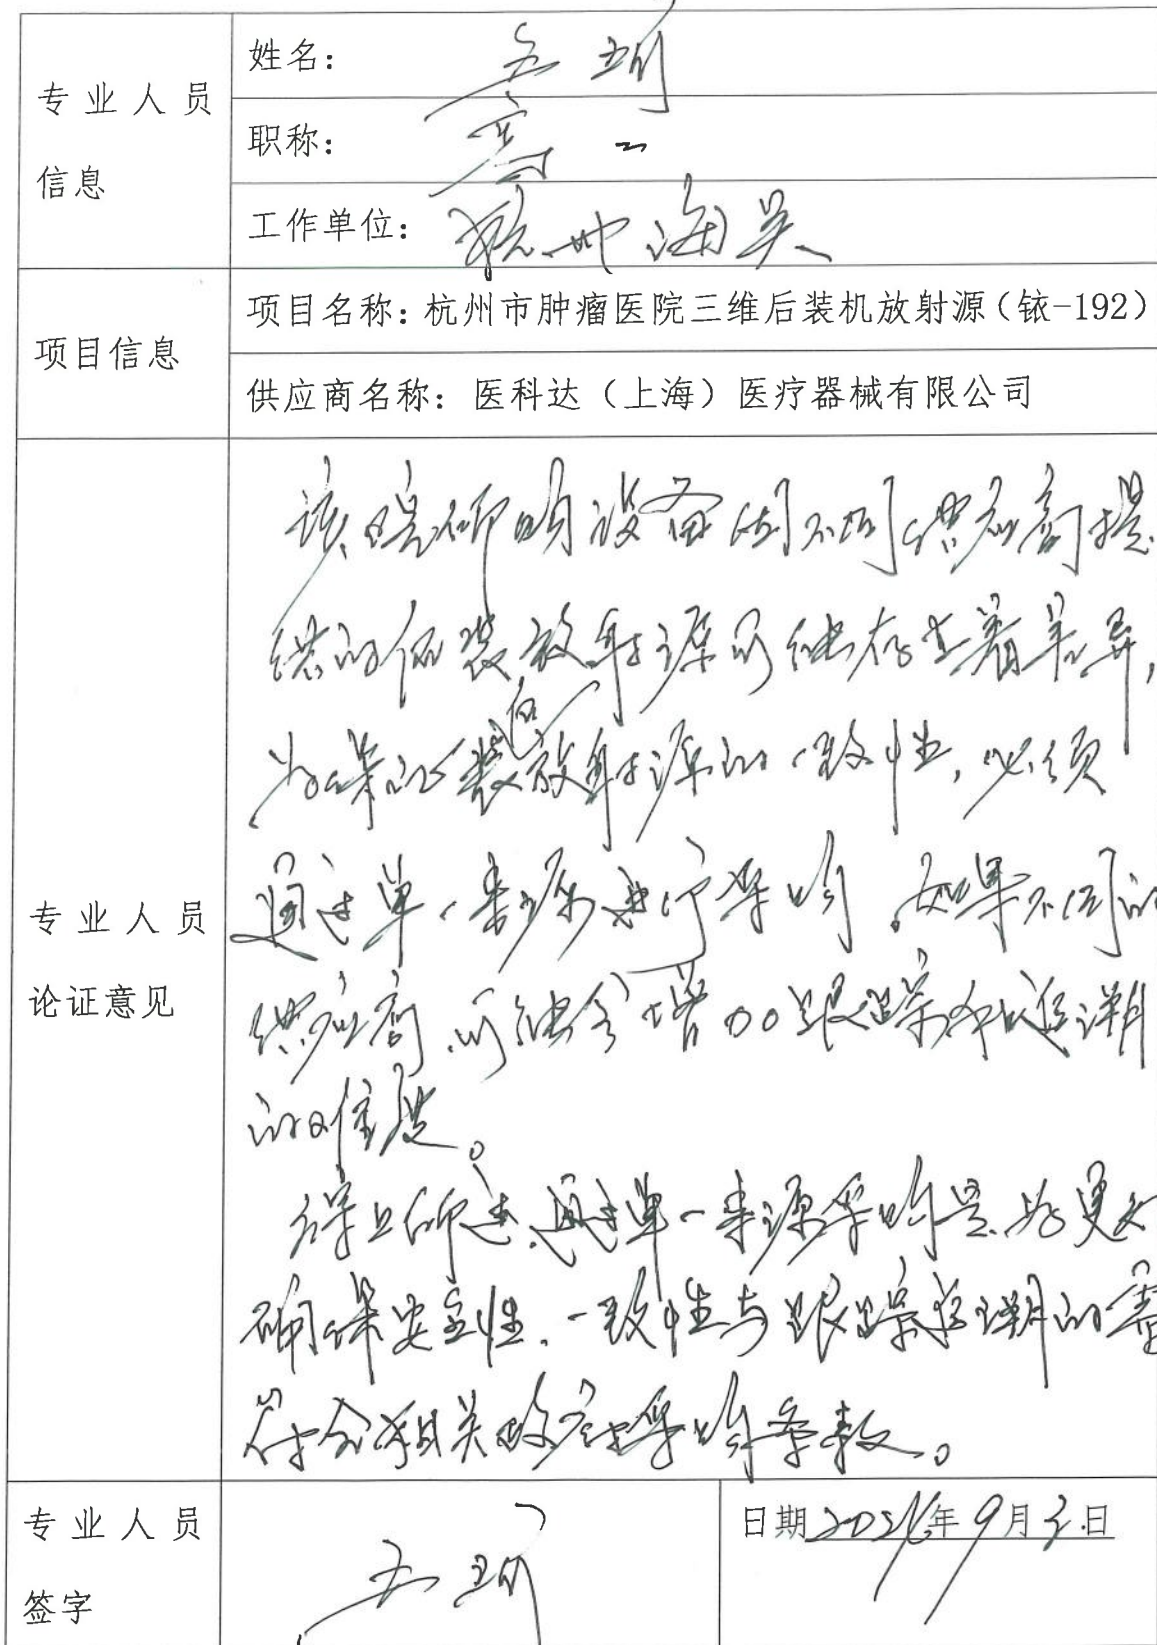 专业人员
信息
姓名：
职称：高工
工作单位：杭州海关
项目信息
项目名称：杭州市肿瘤医院三维后装机放射源（铱-192）
供应商名称：医科达（上海）医疗器械有限公司
专业人员
论证意见
该院所购设备因不同供应商提
供的后装放射源可能存在着差异，
为保证后装放射源的一致性，必须
通过单一来源进行采购。如果不同的
供应商，可能会增加跟踪和追溯
的难度。
综上所述，通过单一来源采购是为更好
确保安全性、一致性与跟踪追溯的需
符合相关政府采购条款。
专业人员
签字
日期 年9月3日